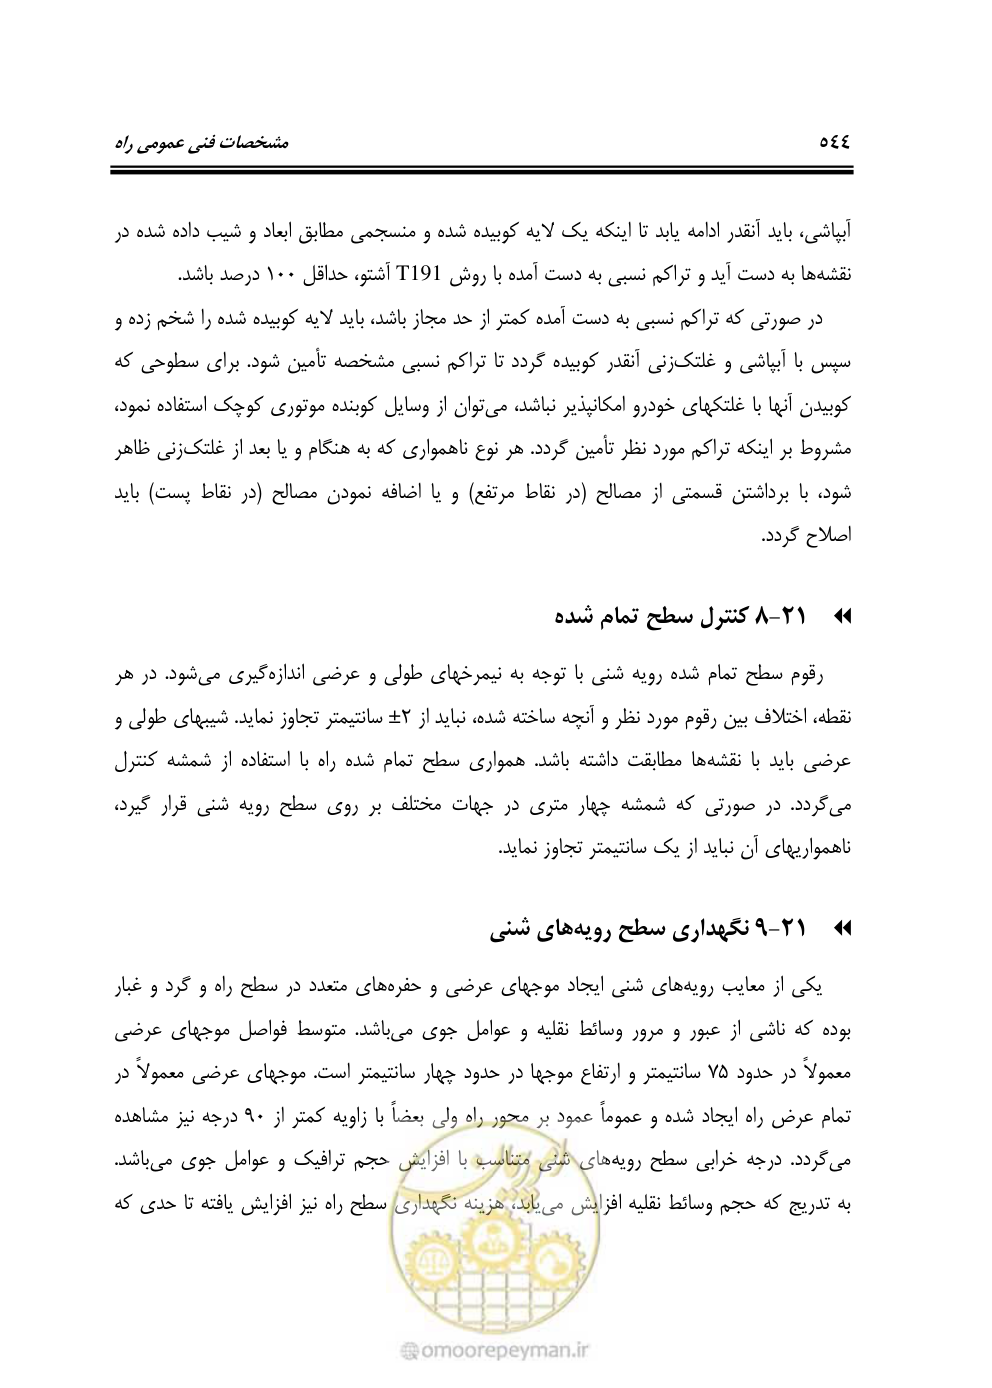 ۵۴۴
مشخصات فنی عمومی راه
آبپاشی، باید آنقدر ادامه یابد تا اینکه یک لایه کوبیده شده و منسجمی مطابق ابعاد و شیب داده شده در
نقشه‌ها به دست آید و تراکم نسبی به دست آمده با روش T191 آشتو، حداقل ۱۰۰ درصد باشد.
در صورتی که تراکم نسبی به دست آمده کمتر از حد مجاز باشد، باید لایه کوبیده شده را شخم زده و
سپس با آبپاشی و غلتک‌زنی آنقدر کوبیده گردد تا تراکم نسبی مشخصه تأمین شود. برای سطوحی که
کوبیدن آنها با غلتکهای خودرو امکانپذیر نباشد، می‌توان از وسایل کوبنده موتوری کوچک استفاده نمود،
مشروط بر اینکه تراکم مورد نظر تأمین گردد. هر نوع ناهمواری که به هنگام و یا بعد از غلتک‌زنی ظاهر
شود، با برداشتن قسمتی از مصالح (در نقاط مرتفع) و یا اضافه نمودن مصالح (در نقاط پست) باید
اصلاح گردد.
۲۱-۸ کنترل سطح تمام شده
رقوم سطح تمام شده رویه شنی با توجه به نیمرخهای طولی و عرضی اندازه‌گیری می‌شود. در هر
نقطه، اختلاف بین رقوم مورد نظر و آنچه ساخته شده، نباید از ۲± سانتیمتر تجاوز نماید. شیبهای طولی و
عرضی باید با نقشه‌ها مطابقت داشته باشد. همواری سطح تمام شده راه با استفاده از شمشه کنترل
می‌گردد. در صورتی که شمشه چهار متری در جهات مختلف بر روی سطح رویه شنی قرار گیرد،
ناهمواریهای آن نباید از یک سانتیمتر تجاوز نماید.
۲۱-۹ نگهداری سطح رویه‌های شنی
یکی از معایب رویه‌های شنی ایجاد موجهای عرضی و حفره‌های متعدد در سطح راه و گرد و غبار
بوده که ناشی از عبور و مرور وسائط نقلیه و عوامل جوی می‌باشد. متوسط فواصل موجهای عرضی
معمولاً در حدود ۷۵ سانتیمتر و ارتفاع موجها در حدود چهار سانتیمتر است. موجهای عرضی معمولاً در
تمام عرض راه ایجاد شده و عموماً عمود بر محور راه ولی بعضاً با زاویه کمتر از ۹۰ درجه نیز مشاهده
می‌گردد. درجه خرابی سطح رویه‌های شنی متناسب با افزایش حجم ترافیک و عوامل جوی می‌باشد.
به تدریج که حجم وسائط نقلیه افزایش می‌یابد، هزینه نگهداری سطح راه نیز افزایش یافته تا حدی که
امور پیمان
omoorepeyman.ir